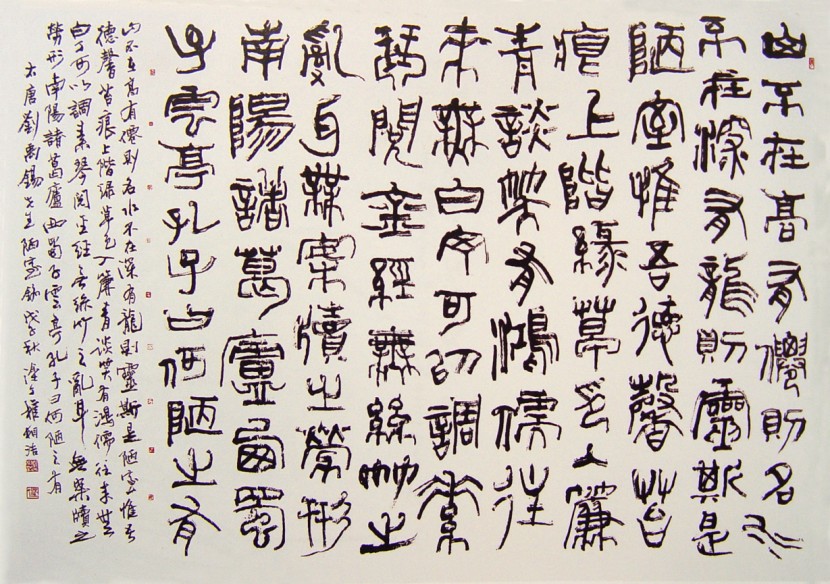 山不在高有僊則名水
不在深有龍則靈斯是
陋室惟吾德馨苔
痕上階緣草色入簾
青談笑有鴻儒往
来無白丁可以調素
琴閱金經無絲竹之
亂耳無案牘之勞形
南陽諸葛廬西蜀
子雲亭孔子曰何陋之有
山不在高有僊則名水不在深有龍則靈斯是陋室惟吾
德馨苔痕上階緑草色入簾青談笑有鴻儒往来無
白丁可以調素琴閱金經無絲竹之亂耳無案牘之
勞形南陽諸葛廬西蜀子雲亭孔子曰何陋之有
太唐劉禹錫先生陋室銘戊子秋